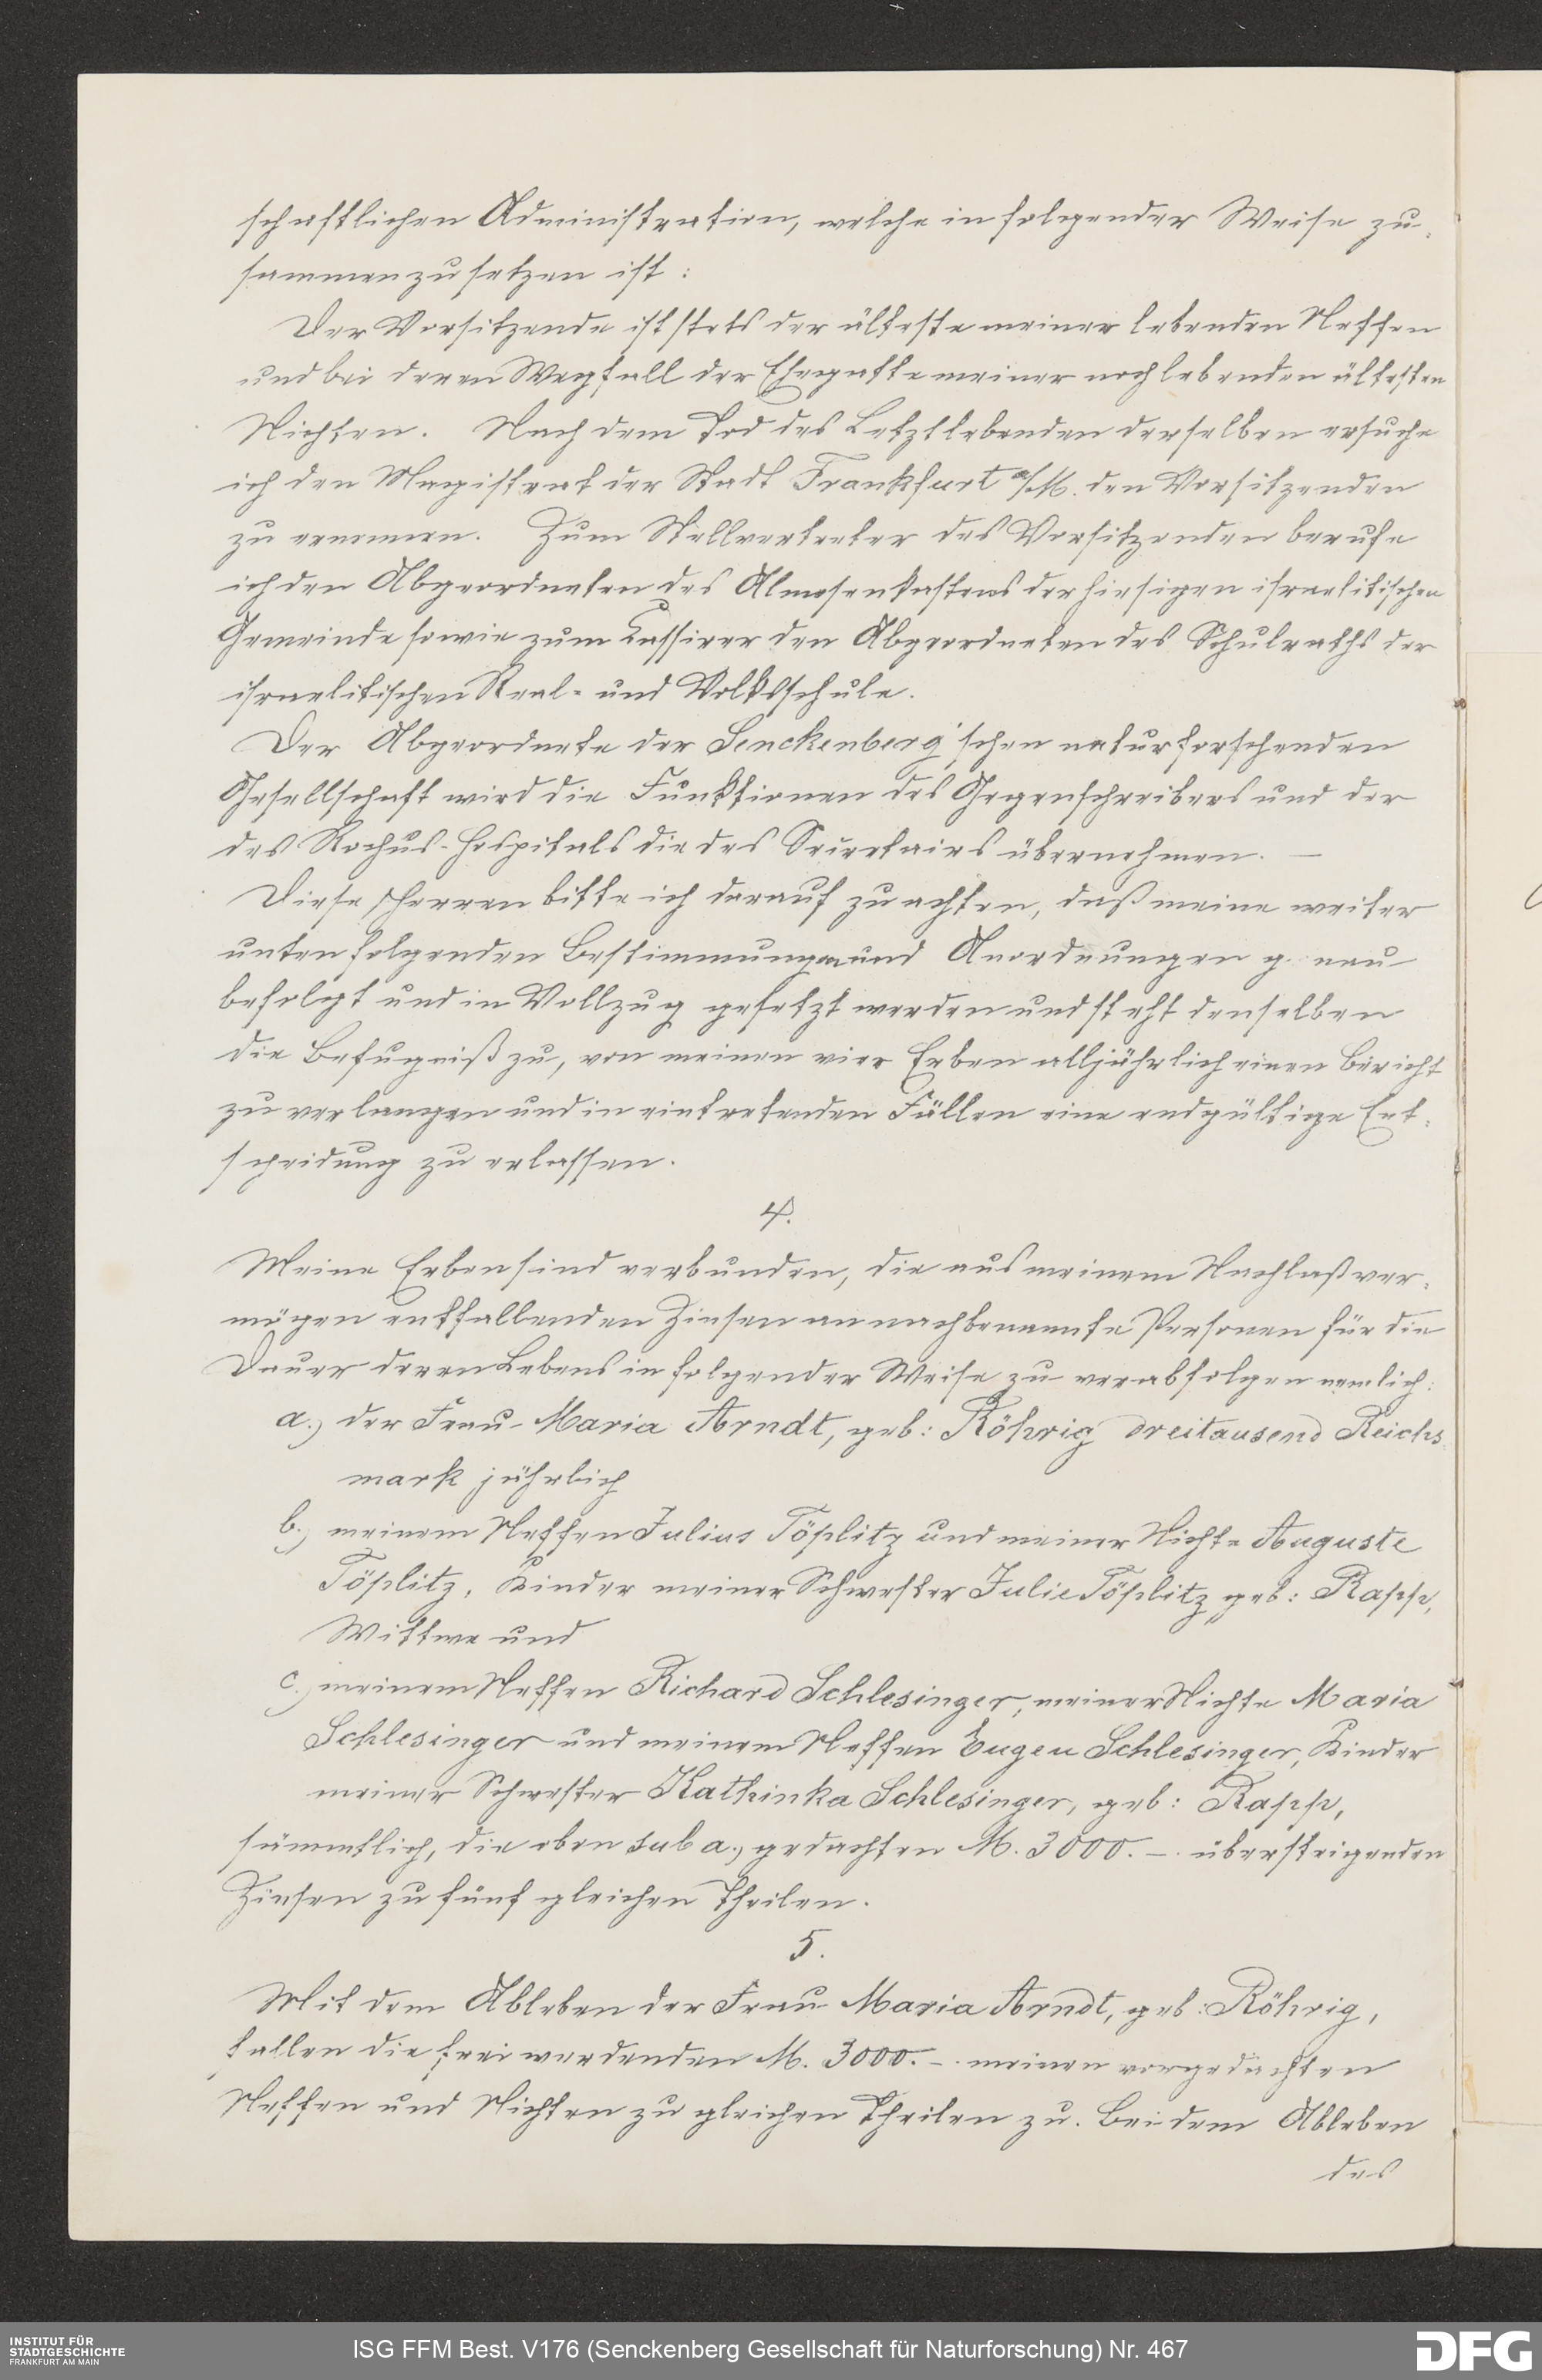 schaftlichen Administration, welche in folgender Weise zu-
sammenzusetzen ist:
Der Vorsitzende ist stets der älteste meiner lebenden Neffen
und bei deren Wegfall der Ehegatte meiner noch lebenden ältesten
Nichten. Nach dem Tod des Letztlebenden derselben ersuche
ich den Magistrat der Stadt Frankfurt a/M. den Vorsitzenden
zu ernennen. Zum Stellvertreter des Vorsitzenden berufe
ich den Abgeordneten des Almosenkastens der hiesigen israelitischen
Gemeinde sowie zum Cassirer den Abgeordneten des Schulraths der
israelitischen Real- und Volksschule.
Der Abgeordnete der Senckenberg'schen naturforschenden
Gesellschaft wird die Funktionen des Gegenschreibers und der
des Rochus-Hospitals die des Secretairs übernehmen. —
Diese Herren bitte ich darauf zu achten, daß meine weiter
unten folgenden Bestimmungen und Anordnungen genau
befolgt und in Vollzug gesetzt werden und steht denselben
die Befugniß zu, von meinen vier Erben alljährlich einen Bericht
zu verlangen und in eintretenden Fällen eine endgültige Ent-
scheidung zu erlassen.
4.
Meine Erben sind verbunden, die aus meinem Nachlaßver-
mögen entfallenden Zinsen an nachbenannte Personen für die
Dauer deren Lebens in folgender Weise zu verabfolgen nemlich:
a.) der Frau Maria Arndt, geb: Röhrig dreitausend Reichs-
mark jährlich
b.) meinem Neffen Julius Töplitz und meiner Nichte Auguste
Töplitz, Kinder meiner Schwester Julie Töplitz geb: Rapp,
Wittwe und
c.) meinem Neffen Richard Schlesinger, meiner Nichte Maria
Schlesinger und meinem Neffen Eugen Schlesinger, Kinder
meiner Schwester Kathinka Schlesinger, geb: Rapp,
sämmtlich, die oben sub a.) gedachten M. 3000.-. übersteigenden
Zinsen zu fünf gleichen Theilen.
5.
Mit dem Ableben der Frau Maria Arndt, geb: Röhrig,
fallen die frei werdenden M. 3000.-. meinen vorgedachten
Neffen und Nichten zu gleichen Theilen zu. Bei dem Ableben
des
INSTITUT FÜR
STADTGESCHICHTE
FRANKFURT AM MAIN
ISG FFM Best. V176 (Senckenberg Gesellschaft für Naturforschung) Nr. 467
DFG